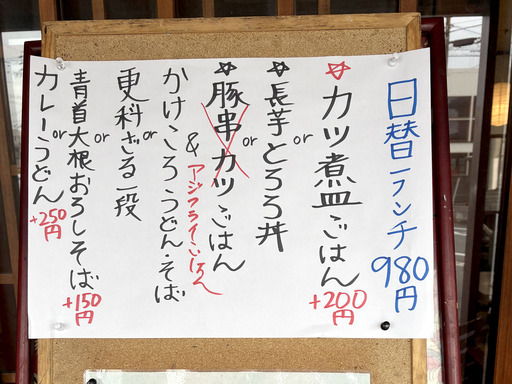 日替ランチ 980円
☆カツ煮皿ごはん +200円
or
☆長芋とろろ丼
or
☆豚串カツごはん
アジフライごはん
&
かけころうどん・そば
or
更科ざる一段
or
青首大根おろしそば +150円
or
カレーうどん +250円